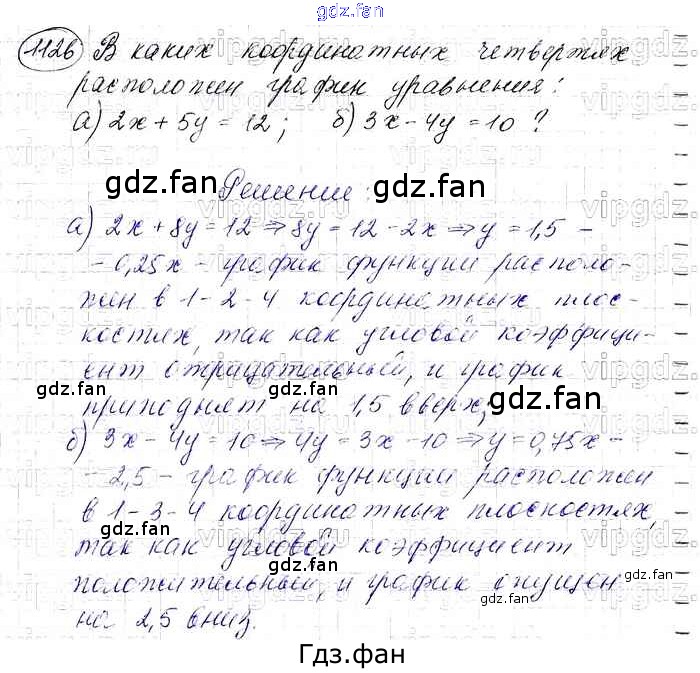 gdz.fan
1126 В каких координатных четвертях
расположен график уравнения:
а) 2x + 5y = 12; б) 3x - 4y = 10 ?
gdz.fan Решение: gdz.fan
а) 2x + 8y = 12 ⇒ 8y = 12 - 2x ⇒ y = 1,5 -
- 0,25x - график функции располо-
жен в 1-2-4 координатных плос-
костях, так как угловой коэффици-
ент отрицательный, и график
gdz.fan gdz.fan
приподнят на 1,5 вверх;
б) 3x - 4y = 10 ⇒ 4y = 3x - 10 ⇒ y = 0,75x -
- 2,5 - график функции расположен
в 1-3-4 координатных плоскостях,
gdz.fan
так как угловой коэффициент
положительный, и график опущен
gdz.fan gdz.fan
на 2,5 вниз.
Гдз.фан